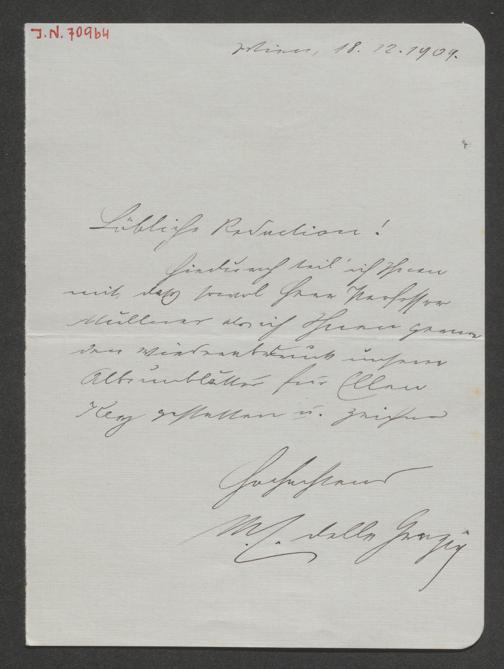 J.N. 70964
Wien, 18. 12. 1909.
Löbliche Redaction!
Hiedurch teil' ich Ihnen
mit, daß sowol Herr Professor
Müllner als ich Ihnen gerne
den Wiederabdruck unserer
Albumblätter für Ellen
Key gestatten u. zeichne
Hochachtend
M. E. delle Grazie